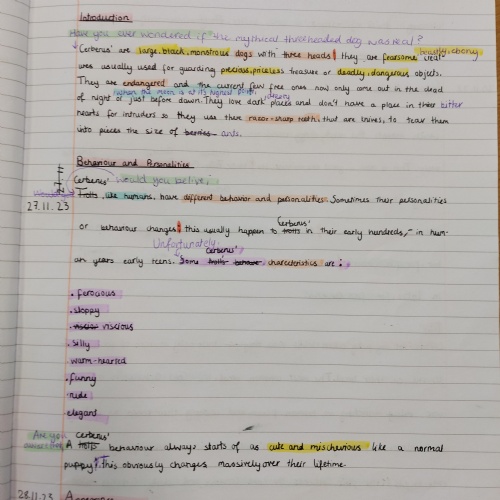 Introduction
Have you ever wondered if the mythical three headed dog was real?
Cerberus' are large, black, monstrous dogs with three heads! they are fearsome creat- beastly, ebony
ures usually used for guarding precious, priceless treasure or deadly, dangerous objects.
They are endangered and the current few free ones now only come out in the dead
(when the moon is at its highest point)
of night or just before dawn. They love dark places and don't have a place in their bitter
hearts for intruders so they use their razor-sharp teeth, that are knives, to tear them
into pieces the size of berries ants.
Behaviour and Personalities
Cerberus' would you belive,
Trolls, like humans, have different behavior and personalities. Sometimes their personalities
27.11.23
cerberus'
or behaviour changes! this usually happen to trolls in their early hundreds, in hum-
Unfortunately,
cerberus'
an years early teens. Some trolls behavior characteristics are:
. ferocious
. sloppy
. viscious
. silly
. warm-hearted
. funny
. rude
. elegant
Are you
cerberus'
A behaviour always starts of as cute and mischievious like a normal
puppy! This obviously changes massively over their lifetime.
28.11.23